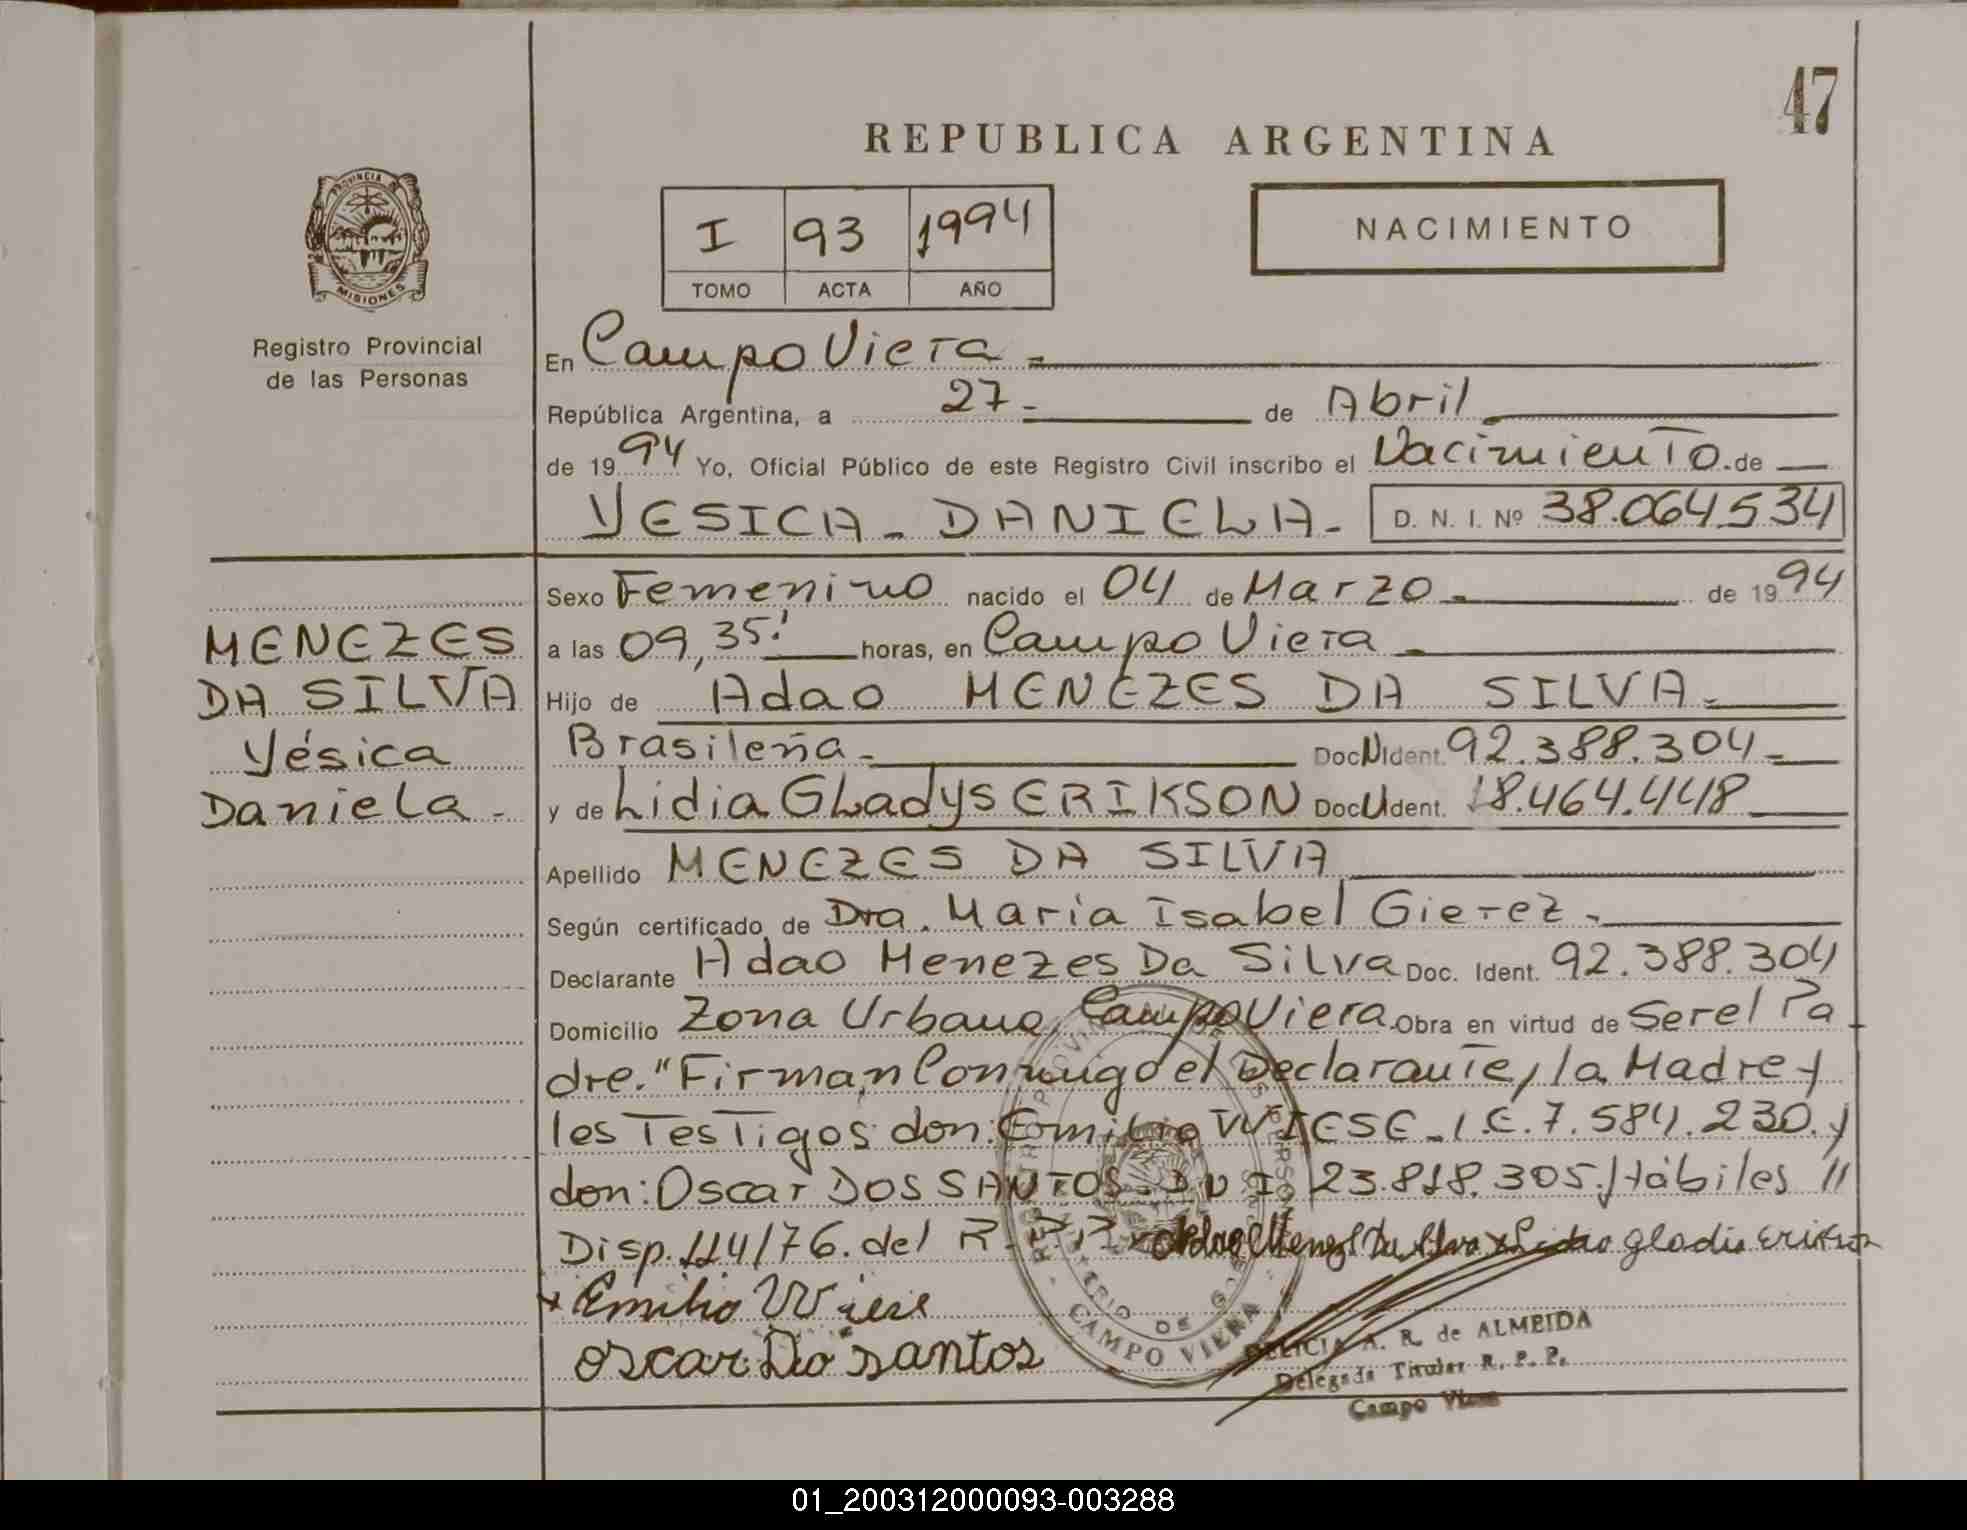 47
REPUBLICA ARGENTINA
PROVINCIA DE
MISIONES
Registro Provincial
de las Personas
I 93 1994
TOMO ACTA AÑO
NACIMIENTO
En Campo Viera -
República Argentina, a 27 - de Abril
de 1994 Yo, Oficial Público de este Registro Civil inscribo el Nacimiento de
YESICA - DANIELA - D. N. I. Nº 38.064.534
MENEZES
DA SILVA
Yésica
Daniela -
Sexo Femenino nacido el 04 de Marzo - de 1994
a las 09,35' horas, en Campo Viera -
Hijo de Adao MENEZES DA SILVA -
Brasileña - Doc N Ident. 92.388.304 -
y de Lidia GLadys ERIKSON Doc U Ident. 18.464.448
Apellido MENEZES DA SILVA
Según certificado de Dra. Maria Isabel Gierez -
Declarante Adao Menezes Da Silva Doc. Ident. 92.388.304
Domicilio Zona Urbana, Campo Viera Obra en virtud de Ser el Pa
dre." Firman Conmigo el Declarante, la Madre y
los Testigos don: Emilio WIESE - I.E. 7.584.230. y
don: Oscar DOS SANTOS - DNI. 23.818.305. Hábiles "
Disp. 114/76. del R.P.P. Adao Menezes Da Silva x Lidia gladis Erikson
x Emilio Wiese
oscar Do santos
CAMPO VIERA
DELICIA A. R. de ALMEIDA
Delegada Titular R. P. P.
Campo Viera
01_200312000093-003288